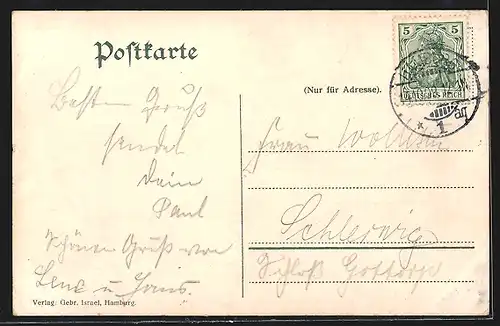 Postkarte
5 5
DEUTSCHES REICH
(Nur für Adresse).
Besten Gruß
sendet
Dein
Paul
Schönen Gruß von
Lene u Hans.
Frau
Schleswig
Schloß Gottorp
Verlag: Gebr. Israel, Hamburg.